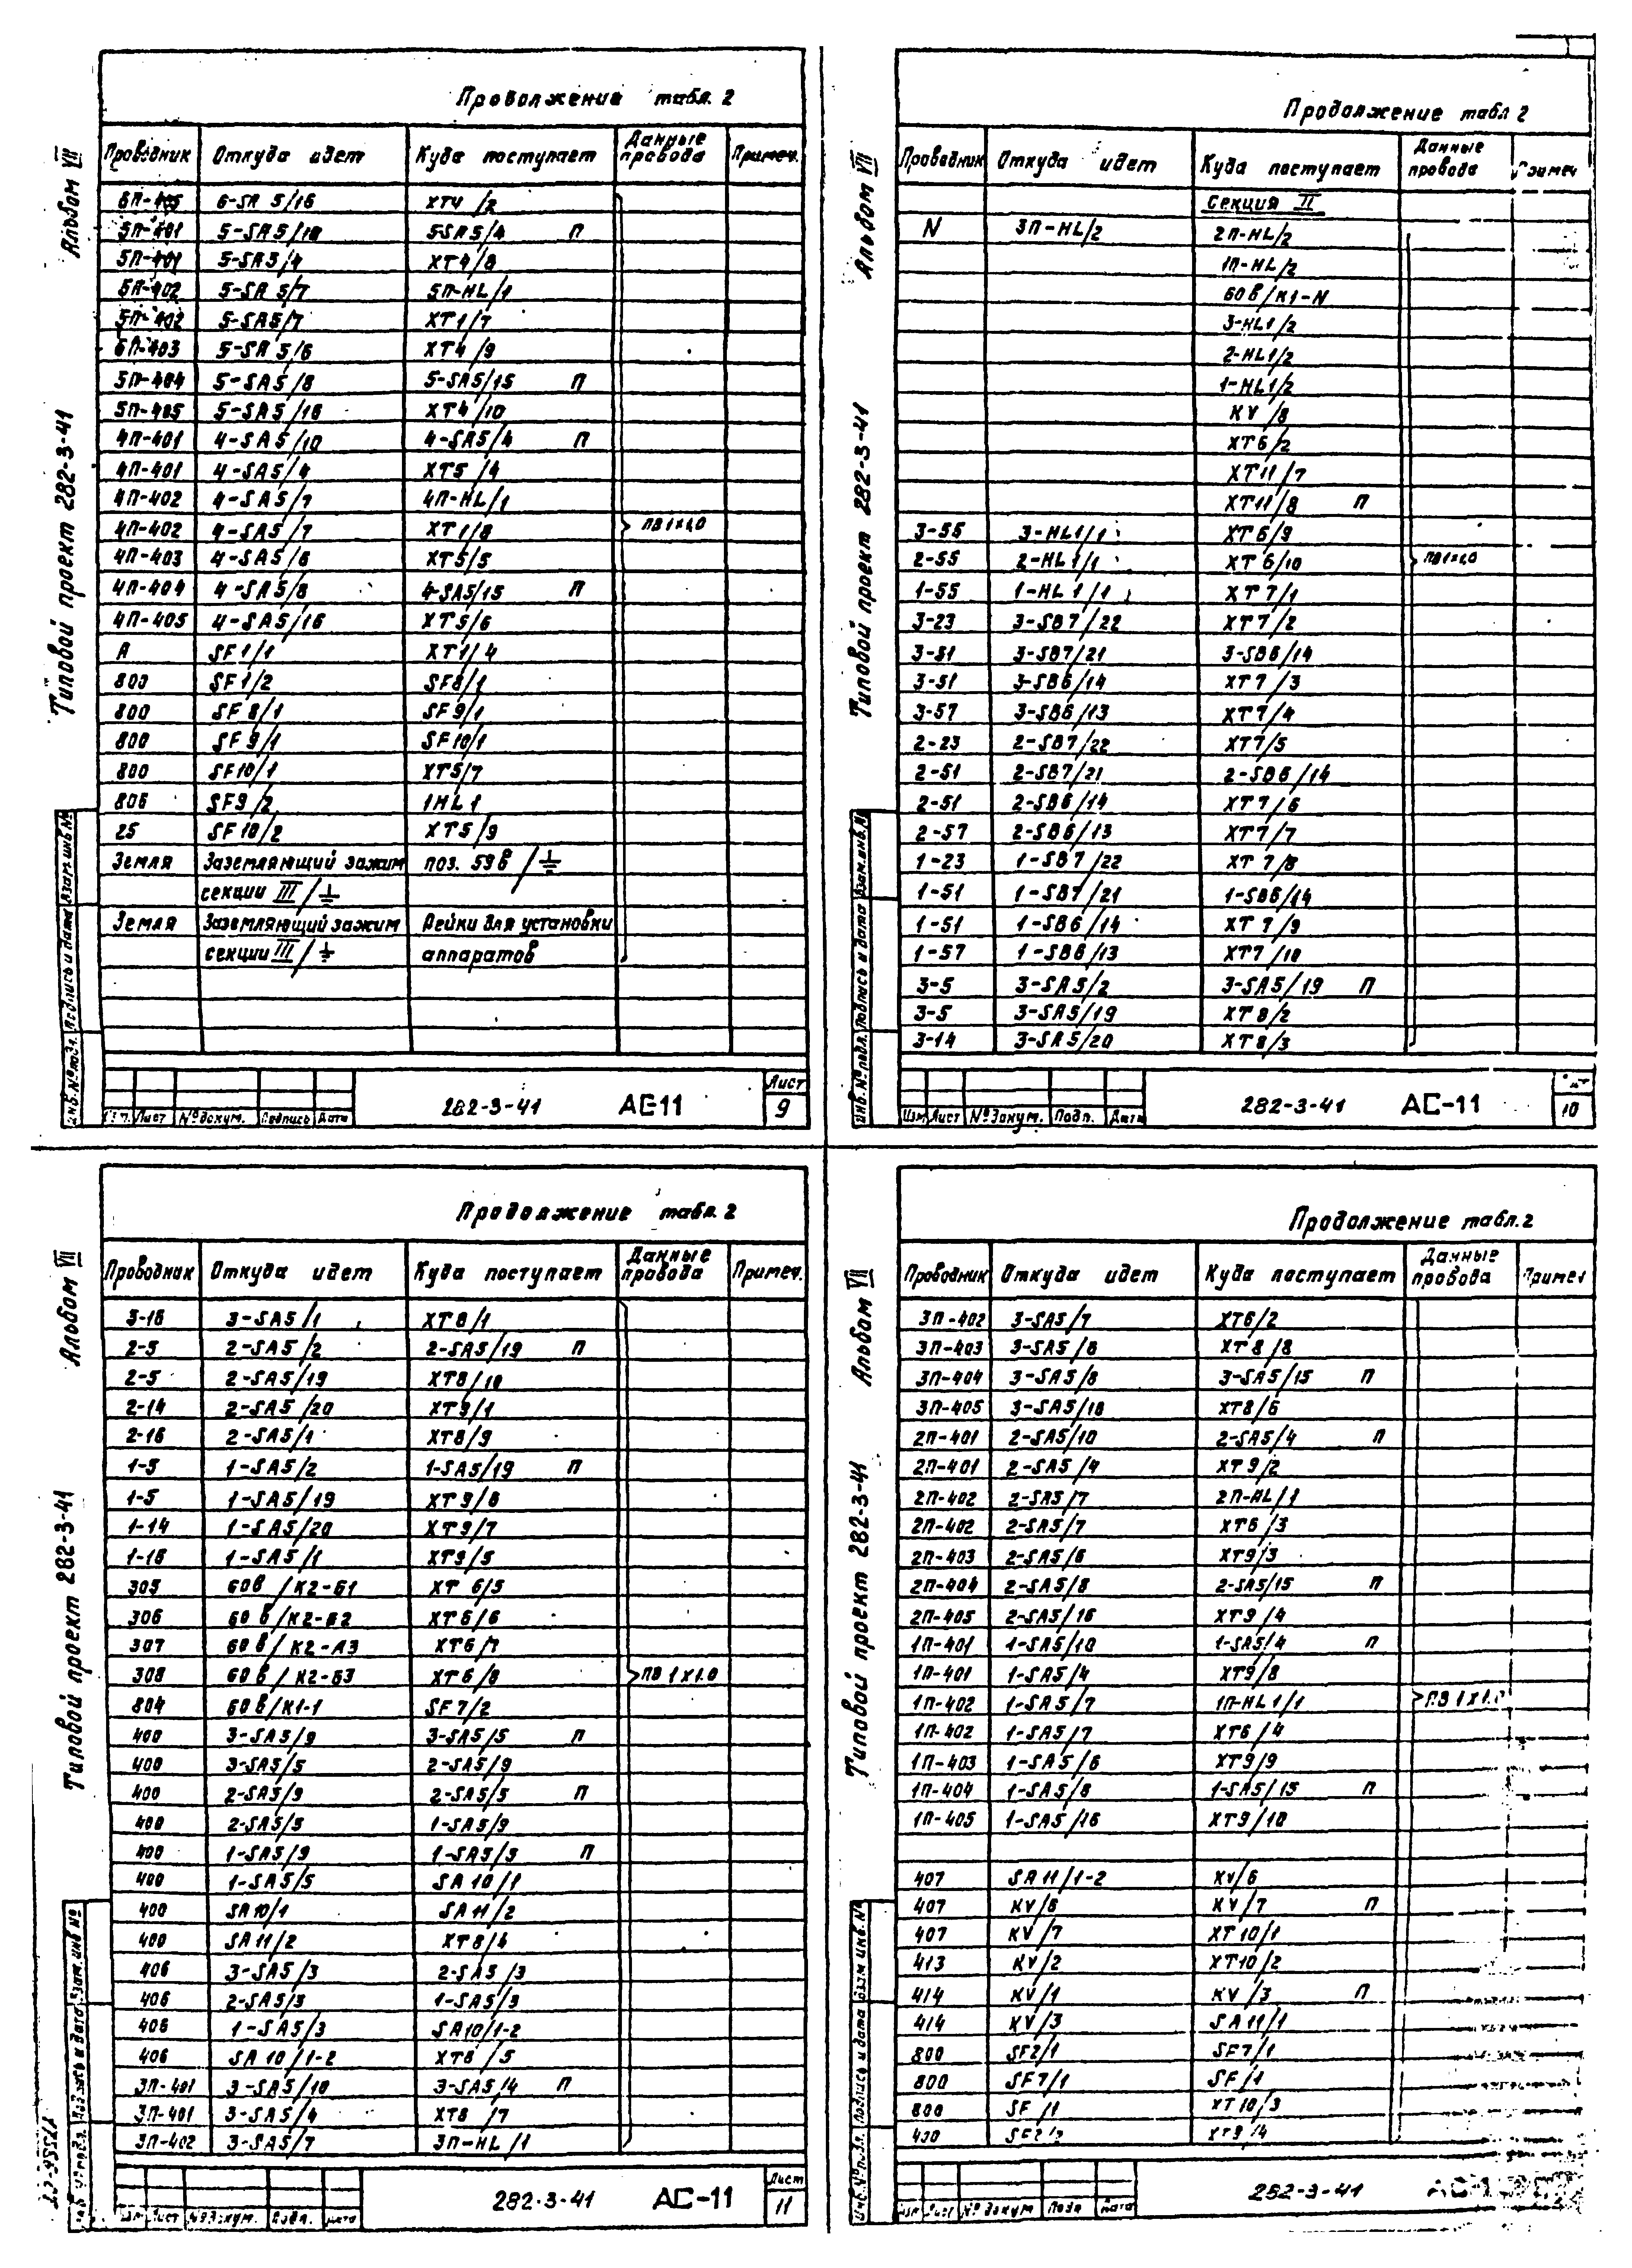 Продолжение табл. 2
Проводник Откуда идет Куда поступает Данные провода Примеч.
6П-405 6-SA 5/16 XT4 /2
5П-401 5-SA5/10 5SA5/4 П
5П-401 5-SA5/4 XT4/8
5П-402 5-SA 5/7 5П-HL/1
5П-402 5-SA5/7 XT1/7
5-SA 5/6 XT4 /9
5П-404 5-SA5/8 5-SA5/15 П
5П-405 5-SA5/16 XT4/10
4П-401 4-SA5/10 4-SA5/4 П
4П-401 4-SA5/4 XT5 /4
4П-402 4-SA5/7 4П-HL/1
4П-402 4-SA5/7 XT1/8 ПВ1×1,0
4П-403 4-SA5/6 XT5/5
4П-404 4-SA5/8 4-SA5/15 П
4П-405 4-SA5/16 XT5/6
A SF1/1 XT1/4
800 SF1/2 SF8/1
800 SF8/1 SF9/1
800 SF9/1 SF10/1
800 SF10/1 XT5/7
806 SF9/2 1HL1
25 SF10/2 XT5/9
Земля Заземляющий зажим поз. 59в/⏚
секции III/⏚
Земля Заземляющий зажим Рейки для установки
секции III/⏚ аппаратов
282-3-41 АС-11 Лист 9
Лист №докум. Подпись Дата
Альбом VII
Типовой проект 282-3-41
Инв.№подл. Подпись и дата Взам.инв.№
Продолжение табл 2
Проводник Откуда идет Куда поступает Данные провода Примеч
Секция II
N 3П-HL/2 2П-HL/2
1П-HL/2
60в/К1-N
3-HL1/2
2-HL1/2
1-HL1/2
KV/8
XT6/2
XT11/7
XT11/8 П
3-55 3-HL1/1 XT6/9
2-55 2-HL1/1 XT6/10 ПВ1×1,0
1-55 1-HL1/1 XT7/1
3-23 3-SB7/22 XT7/2
3-51 3-SB7/21 3-SB6/14
3-51 3-SB6/14 XT7/3
3-57 3-SB6/13 XT7/4
2-23 2-SB7/22 XT7/5
2-51 2-SB7/21 2-SB6/14
2-51 2-SB6/14 XT7/6
2-57 2-SB6/13 XT7/7
1-23 1-SB7/22 XT7/8
1-51 1-SB7/21 1-SB6/14
1-51 1-SB6/14 XT7/9
1-57 1-SB6/13 XT7/10
3-5 3-SA5/2 3-SA5/19 П
3-5 3-SA5/19 XT8/2
3-14 3-SA5/20 XT8/3
282-3-41 АС-11 10
Изм Лист №докум. Подп. Дата
Альбом VII
Типовой проект 282-3-41
Инв.№подл. Подпись и дата Взам.инв.№
Продолжение табл. 2
Проводник Откуда идет Куда поступает Данные провода Примеч.
3-16 3-SA5/1 XT8/1
2-5 2-SA5/2 2-SA5/19 П
2-5 2-SA5/19 XT8/10
2-14 2-SA5/20 XT9/1
2-16 2-SA5/1 XT8/9
1-5 1-SA5/2 1-SA5/19 П
1-5 1-SA5/19 XT9/6
1-14 1-SA5/20 XT9/7
1-16 1-SA5/1 XT9/5
305 60в/К2-Б1 XT 6/5
306 60в/К2-Б2 XT6/6
307 60в/К2-А3 XT6/7
308 60в/К2-Б3 XT6/8 ПВ 1×1.0
804 60в/К1-1 SF7/2
400 3-SA5/9 3-SA5/5 П
400 3-SA5/5 2-SA5/9
400 2-SA5/9 2-SA5/5 П
400 2-SA5/5 1-SA5/9
400 1-SA5/9 1-SA5/5 П
400 1-SA5/5 SA10/1
400 SA10/1 SA11/2
400 SA11/2 XT8/4
406 3-SA5/3 2-SA5/3
406 2-SA5/3 1-SA5/3
406 1-SA5/3 SA10/1-2
406 SA10/1-2 XT8/5
3П-401 3-SA5/10 3-SA5/4 П
3П-401 3-SA5/4 XT8/7
3П-402 3-SA5/7 3П-HL/1
282-3-41 АС-11 Лист 11
Лист №докум. Подп. Дата
Альбом VII
Типовой проект 282-3-41
Продолжение табл.2
Проводник Откуда идет Куда поступает Данные провода Примеч
3П-402 3-SA5/7 XT6/2
3П-403 3-SA5/6 XT8/8
3П-404 3-SA5/8 3-SA5/15 П
3П-405 3-SA5/16 XT8/6
2П-401 2-SA5/10 2-SA5/4 П
2П-401 2-SA5/4 XT9/2
2П-402 2-SA5/7 2П-HL/1
2П-402 2-SA5/7 XT6/3
2П-403 2-SA5/6 XT9/3
2П-404 2-SA5/8 2-SA5/15 П
2П-405 2-SA5/16 XT9/4
1П-401 1-SA5/10 1-SA5/4 П
1П-401 1-SA5/4 XT9/8
1П-402 1-SA5/7 1П-HL1/1 ПВ 1×1.0
1П-402 1-SA5/7 XT6/4
1П-403 1-SA5/6 XT9/9
1П-404 1-SA5/8 1-SA5/15 П
1П-405 1-SA5/16 XT9/10
407 SA11/1-2 KV/6
407 KV/6 KV/7 П
407 KV/7 XT10/1
413 KV/2 XT10/2
414 KV/1 KV/3 П
414 KV/3 SA11/1
800 SF2/1 SF7/1
800 SF7/1 SF/1
800 SF/1 XT10/3
400 SF2/2 XT9/4
282-3-41
Лист №докум Подп Дата
Альбом VII
Типовой проект 282-3-41